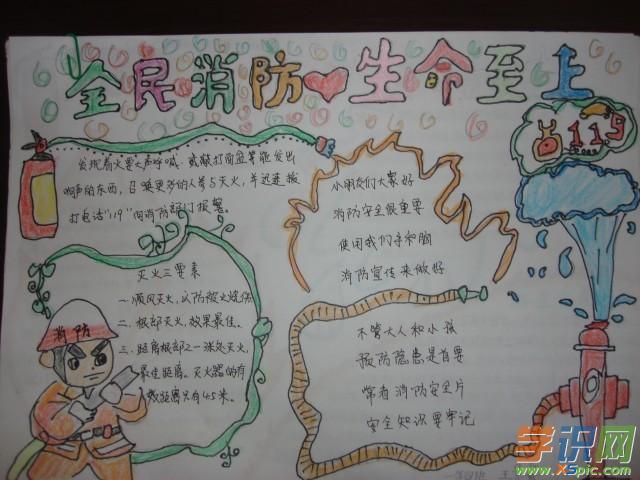 全民消防 生命至上
119
发现着火要大声呼喊、或敲打面盆等能发出
响声的东西，召唤更多的人参与灭火，并迅速拨
打电话"119"向消防部门报警。
小朋友们大家好
消防安全很重要
使用我们手和脑
消防宣传来做好
灭火三要素
一.顺风灭火，以防被火烧伤
二.根部灭火，效果最佳。
三.距离根部2一3米处灭火，
最佳距离。灭火器的有
效距离只有4.5米。
消防
不管大人和小孩
预防隐患是首要
常看消防安全片
安全知识要牢记
学识网
www.XSpic.com